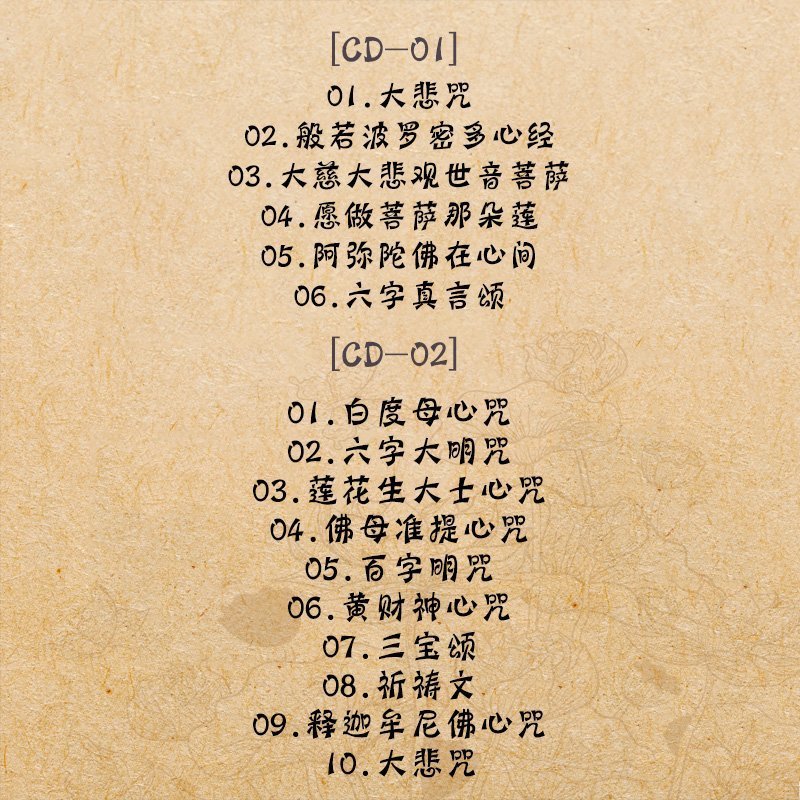 [CD-01]
01.大悲咒
02.般若波罗密多心经
03.大慈大悲观世音菩萨
04.愿做菩萨那朵莲
05.阿弥陀佛在心间
06.六字真言颂
[CD-02]
01.白度母心咒
02.六字大明咒
03.莲花生大士心咒
04.佛母准提心咒
05.百字明咒
06.黄财神心咒
07.三宝颂
08.祈祷文
09.释迦牟尼佛心咒
10.大悲咒